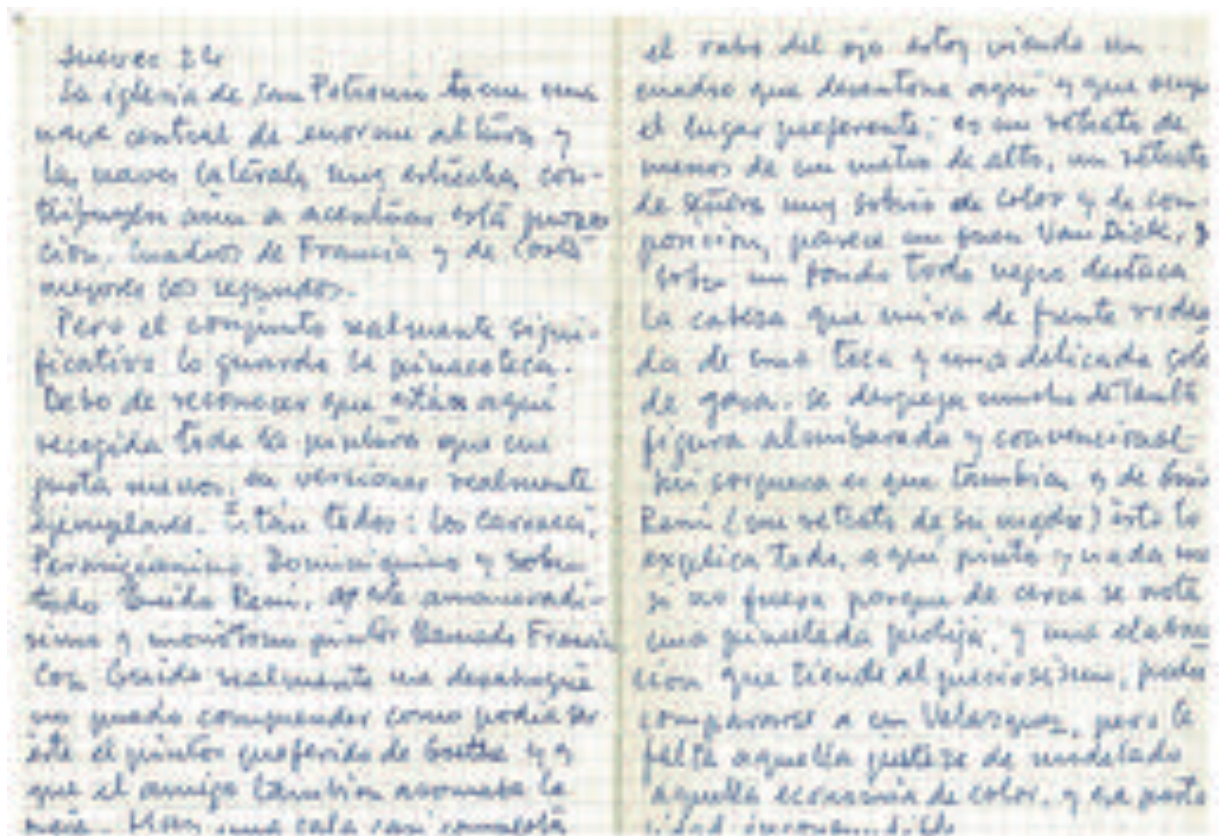 Jueves 24
La iglesia de San Petronio tiene una
nave central de enorme altura y
las naves laterales muy estrechas con-
tribuyen aún a acentuar esta
ción. Cuadros de Francia y de Costa
mejores los segundos.
Pero el conjunto realmente signi-
ficativo lo guarda la pinacoteca.
Debo de reconocer que están aquí
recogida toda la pintura que me
gusta menos, en versiones realmente
ejemplares. Están todos: los Carracci,
Dominiquino y sobre
todo Guido Reni, este amaneradí-
simo y monótono pintor llamado Francia
Con Guido realmente me desahogué
no puedo comprender como podía ser
éste el pintor preferido de Goethe y
que el amigo también
una sala casi completa
el rabo del ojo estoy viendo un
cuadro que desentona aquí y que ocupa
el lugar preferente; es un retrato de
menos de un metro de alto, un retrato
de señora muy sobrio de color y de com-
posición, parece un buen Van Dick, y
sobre un fondo todo negro destaca
la cabeza que mira de frente rodea
da de una toca y una delicada gola
de gasa. se despega mucho de tanta
figura almibarada y convencional
mi sorpresa es que también es de Guido
Reni (un retrato de su madre) esto lo
explica todo, aquí pintó y nada mas
si no fuera porque de cerca se nota
una pincelada prolija, y una elabora
ción que tiende al preciosismo, podría
compararse a un Velazquez, pero le
falta aquella justeza de modelado
aquella economía de color, y esa